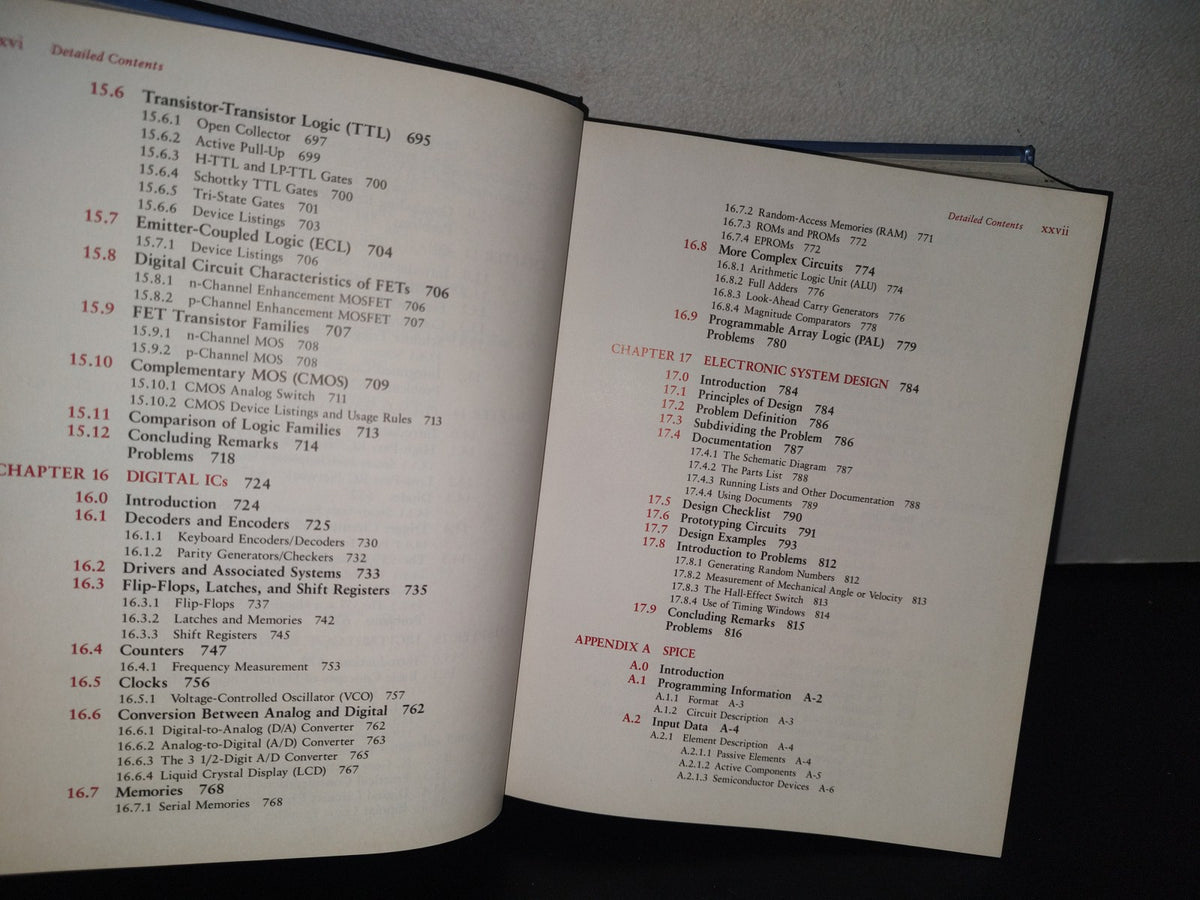 xvi Detailed Contents
15.6 Transistor-Transistor Logic (TTL) 695
15.6.1 Open Collector 697
15.6.2 Active Pull-Up 699
15.6.3 H-TTL and LP-TTL Gates 700
15.6.4 Schottky TTL Gates 700
15.6.5 Tri-State Gates 701
15.6.6 Device Listings 703
15.7 Emitter-Coupled Logic (ECL) 704
15.7.1 Device Listings 706
15.8 Digital Circuit Characteristics of FETs 706
15.8.1 n-Channel Enhancement MOSFET 706
15.8.2 p-Channel Enhancement MOSFET 707
15.9 FET Transistor Families 707
15.9.1 n-Channel MOS 708
15.9.2 p-Channel MOS 708
15.10 Complementary MOS (CMOS) 709
15.10.1 CMOS Analog Switch 711
15.10.2 CMOS Device Listings and Usage Rules 713
15.11 Comparison of Logic Families 713
15.12 Concluding Remarks 714
Problems 718
CHAPTER 16 DIGITAL ICs 724
16.0 Introduction 724
16.1 Decoders and Encoders 725
16.1.1 Keyboard Encoders/Decoders 730
16.1.2 Parity Generators/Checkers 732
16.2 Drivers and Associated Systems 733
16.3 Flip-Flops, Latches, and Shift Registers 735
16.3.1 Flip-Flops 737
16.3.2 Latches and Memories 742
16.3.3 Shift Registers 745
16.4 Counters 747
16.4.1 Frequency Measurement 753
16.5 Clocks 756
16.5.1 Voltage-Controlled Oscillator (VCO) 757
16.6 Conversion Between Analog and Digital 762
16.6.1 Digital-to-Analog (D/A) Converter 762
16.6.2 Analog-to-Digital (A/D) Converter 763
16.6.3 The 3 1/2-Digit A/D Converter 765
16.6.4 Liquid Crystal Display (LCD) 767
16.7 Memories 768
16.7.1 Serial Memories 768
Detailed Contents xxvii
16.7.2 Random-Access Memories (RAM) 771
16.7.3 ROMs and PROMs 772
16.7.4 EPROMs 772
16.8 More Complex Circuits 774
16.8.1 Arithmetic Logic Unit (ALU) 774
16.8.2 Full Adders 776
16.8.3 Look-Ahead Carry Generators 776
16.8.4 Magnitude Comparators 778
16.9 Programmable Array Logic (PAL) 779
Problems 780
CHAPTER 17 ELECTRONIC SYSTEM DESIGN 784
17.0 Introduction 784
17.1 Principles of Design 784
17.2 Problem Definition 786
17.3 Subdividing the Problem 786
17.4 Documentation 787
17.4.1 The Schematic Diagram 787
17.4.2 The Parts List 788
17.4.3 Running Lists and Other Documentation 788
17.4.4 Using Documents 789
17.5 Design Checklist 790
17.6 Prototyping Circuits 791
17.7 Design Examples 793
17.8 Introduction to Problems 812
17.8.1 Generating Random Numbers 812
17.8.2 Measurement of Mechanical Angle or Velocity 813
17.8.3 The Hall-Effect Switch 813
17.8.4 Use of Timing Windows 814
17.9 Concluding Remarks 815
Problems 816
APPENDIX A SPICE
A.0 Introduction
A.1 Programming Information A-2
A.1.1 Format A-3
A.1.2 Circuit Description A-3
A.2 Input Data A-4
A.2.1 Element Description A-4
A.2.1.1 Passive Elements A-4
A.2.1.2 Active Components A-5
A.2.1.3 Semiconductor Devices A-6